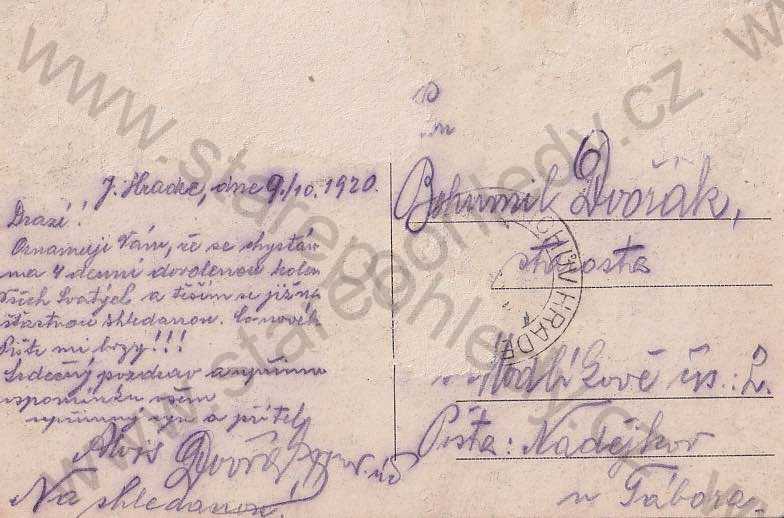 J. Hradec, dne 9./10. 1920.
Drazí!
Oznamuji Vám, že se chystám
na 4 denní dovolenou kolem
Všech Svatých a těším se již na
šťastnou shledanou. Co nového
Pište mi brzy!!!
Srdečný pozdrav a upřímnou
vzpomínku všem
upřímný syn a přítel
Alois Dvořák
Na shledanou!
P
Bohumil Dvořák,
starosta
Modlíkově čís.: 2.
Pošta: Nadějkov
u Tábora.
JINDŘICHŮV HRADEC
www.starepohledy.cz